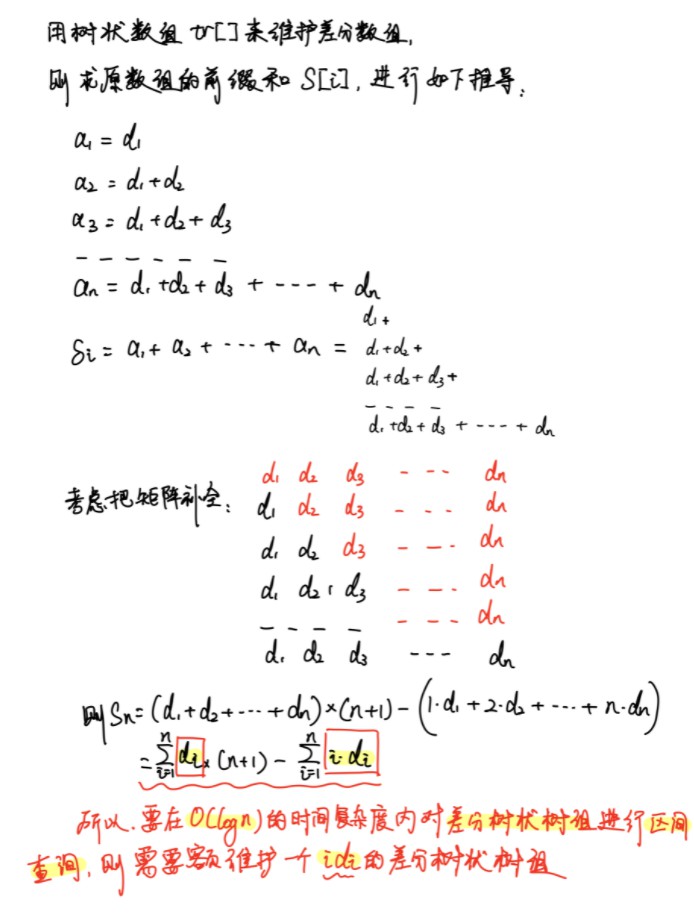 用树状数组 tr[] 来维护差分数组,
则求原数组的前缀和 S[i], 进行如下推导:
a₁ = d₁
a₂ = d₁+d₂
a₃ = d₁+d₂+d₃
— — — — — —
aₙ = d₁+d₂+d₃ + ---- + dₙ
Sᵢ = a₁+a₂+ ---- + aₙ = d₁+
d₁+d₂+
d₁+d₂+d₃+
— — — —
d₁+d₂+d₃ + ---- + dₙ
考虑把矩阵补全:
d₁ d₂ d₃ - --- dₙ
d₁ d₂ d₃ - - - dₙ
d₁ d₂ d₃ - - - dₙ
d₁ d₂ d₃ - - - dₙ
— — — — - - - dₙ
d₁ d₂ d₃ --- dₙ
则 Sₙ=(d₁+d₂+---+dₙ)×(n+1)-(1·d₁+2·d₂+---+n·dₙ)
=∑ⁿᵢ₌₁dᵢ×(n+1)-∑ⁿᵢ₌₁i·dᵢ
所以.要在O(logn)的时间复杂度内对差分树状树组进行区间
查询,则需要额维护一个idᵢ的差分树状树组